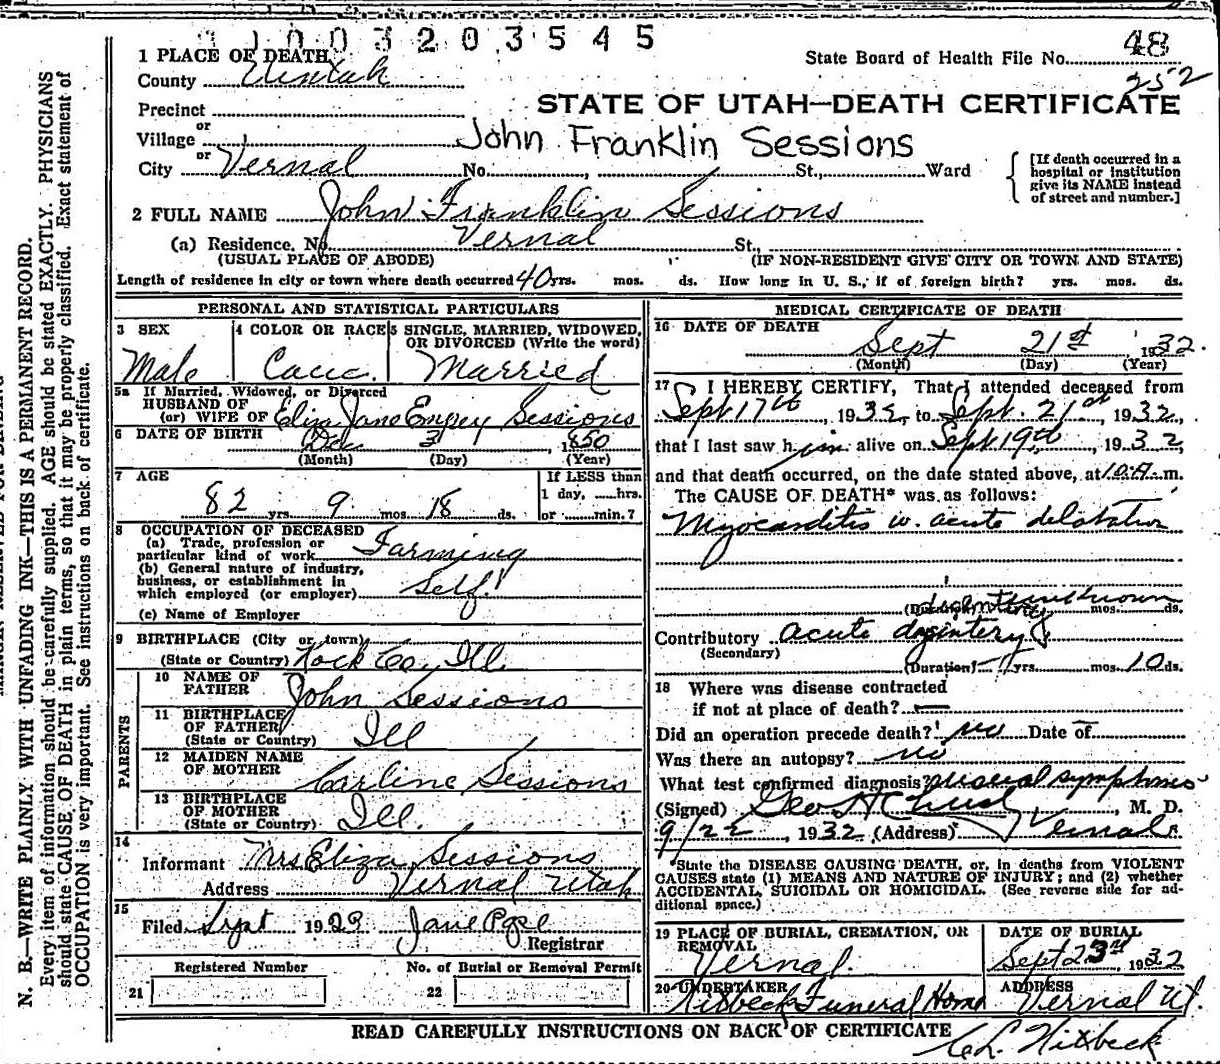 1003203545
1 PLACE OF DEATH
State Board of Health File No. 48
County Uintah
252
Precinct
STATE OF UTAH—DEATH CERTIFICATE
or
Village
John Franklin Sessions
or
City Vernal No. , St., Ward
[If death occurred in a
hospital or institution
give its NAME instead
of street and number.]
2 FULL NAME John Franklin Sessions
(a) Residence, No. Vernal St.,
(USUAL PLACE OF ABODE) (IF NON-RESIDENT GIVE CITY OR TOWN AND STATE)
Length of residence in city or town where death occurred 40 yrs. mos. ds. How long in U. S., if of foreign birth? yrs. mos. ds.
PERSONAL AND STATISTICAL PARTICULARS
3 SEX
Male
4 COLOR OR RACE
Cauc.
5 SINGLE, MARRIED, WIDOWED,
OR DIVORCED (Write the word)
Married
5a If Married, Widowed, or Divorced
HUSBAND OF
(or) WIFE OF Eliza Jane Empey Sessions
6 DATE OF BIRTH Dec 3 1850
(Month) (Day) (Year)
7 AGE
82 yrs. 9 mos. 18 ds.
If LESS than
1 day, hrs.
or min.?
8 OCCUPATION OF DECEASED
(a) Trade, profession or
particular kind of work Farming
(b) General nature of industry,
business, or establishment in
which employed (or employer) Self
(c) Name of Employer
9 BIRTHPLACE (City or town)
(State or Country) Rock Ill.
PARENTS
10 NAME OF
FATHER John Sessions
11 BIRTHPLACE
OF FATHER
(State or Country) Ill
12 MAIDEN NAME
OF MOTHER Carline Sessions
13 BIRTHPLACE
OF MOTHER
(State or Country) Ill.
14
Informant Mrs Eliza Sessions
Address Vernal Utah
15
Filed Sept 19 Jane
Registrar
Registered Number
21
No. of Burial or Removal Permit
22
MEDICAL CERTIFICATE OF DEATH
16 DATE OF DEATH
Sept 21st 1932.
(Month) (Day) (Year)
17 I HEREBY CERTIFY, That I attended deceased from
Sept 17th, 1932, to Sept. 21st, 1932,
that I last saw him alive on Sept 19th, 1932,
and that death occurred, on the date stated above, at 10 A. m.
The CAUSE OF DEATH* was as follows:
Myocarditis w. acute
(Duration) unknown mos. ds.
Contributory acute
(Secondary)
(Duration) yrs. mos. 10 ds.
18 Where was disease contracted
if not at place of death?
Did an operation precede death? no Date of
Was there an autopsy? no
What test confirmed diagnosis? symptoms
(Signed) Geo H , M. D.
9/22, 1932 (Address) Vernal
*State the DISEASE CAUSING DEATH, or, in deaths from VIOLENT
CAUSES state (1) MEANS AND NATURE OF INJURY; and (2) whether
ACCIDENTAL, SUICIDAL OR HOMICIDAL. (See reverse side for ad-
ditional space.)
19 PLACE OF BURIAL, CREMATION, OR
REMOVAL
Vernal.
DATE OF BURIAL
Sept 23rd, 1932
20 UNDERTAKER
Hitbeck Funeral Home
ADDRESS
Vernal Ut.
READ CAREFULLY INSTRUCTIONS ON BACK OF CERTIFICATE
N. B.—WRITE PLAINLY WITH UNFADING INK—THIS IS A PERMANENT RECORD.
Every item of information should be carefully supplied. AGE should be stated EXACTLY. PHYSICIANS
should state CAUSE OF DEATH in plain terms, so that it may be properly classified. Exact statement of
OCCUPATION is very important. See instructions on back of certificate.